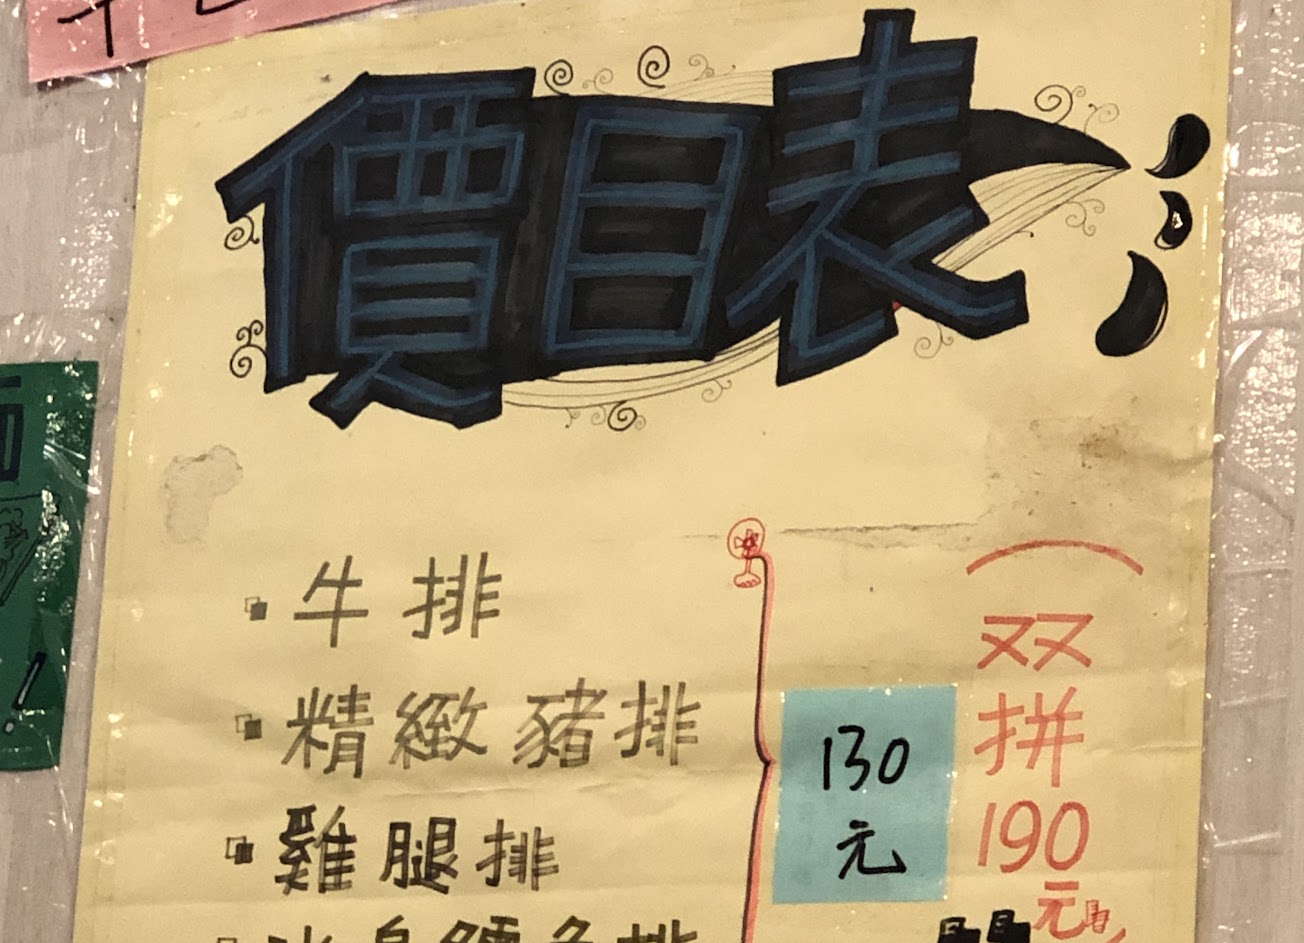 價目表
牛排
精緻豬排
雞腿排
130
元
双
拼
190
元